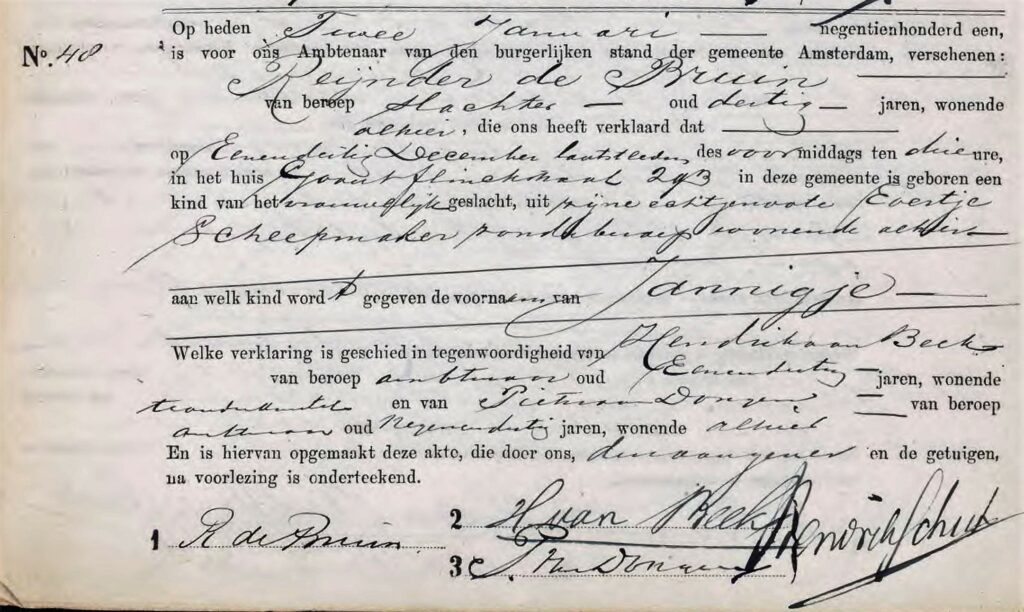 Op heden Twee Januari negentienhonderd een,
No. 48 is voor ons Ambtenaar van den burgerlijken stand der gemeente Amsterdam, verschenen:
Reijnder de Bruin
van beroep slachter oud dertig jaren, wonende
alhier, die ons heeft verklaard dat
op Eenendertig December laatstleden des voormiddags ten drie ure,
in het huis Govert flinckstraat 293 in deze gemeente is geboren een
kind van het vrouwelijk geslacht, uit zijne echtgenoote Evertje
Scheepmaker zonder beroep wonende alhier
aan welk kind wordt gegeven de voornaam van Jannigje
Welke verklaring is geschied in tegenwoordigheid van Hendrik van Beek
van beroep ambtenaar oud Eenendertig jaren, wonende
en van Pieter van Dongen van beroep
ambtenaar oud Negenendertig jaren, wonende alhier
En is hiervan opgemaakt deze akte, die door ons, den aangever en de getuigen,
na voorlezing is onderteekend.
1 R de Bruin
2 H van Beek
Hendrik Schut
3 P. van Dongen